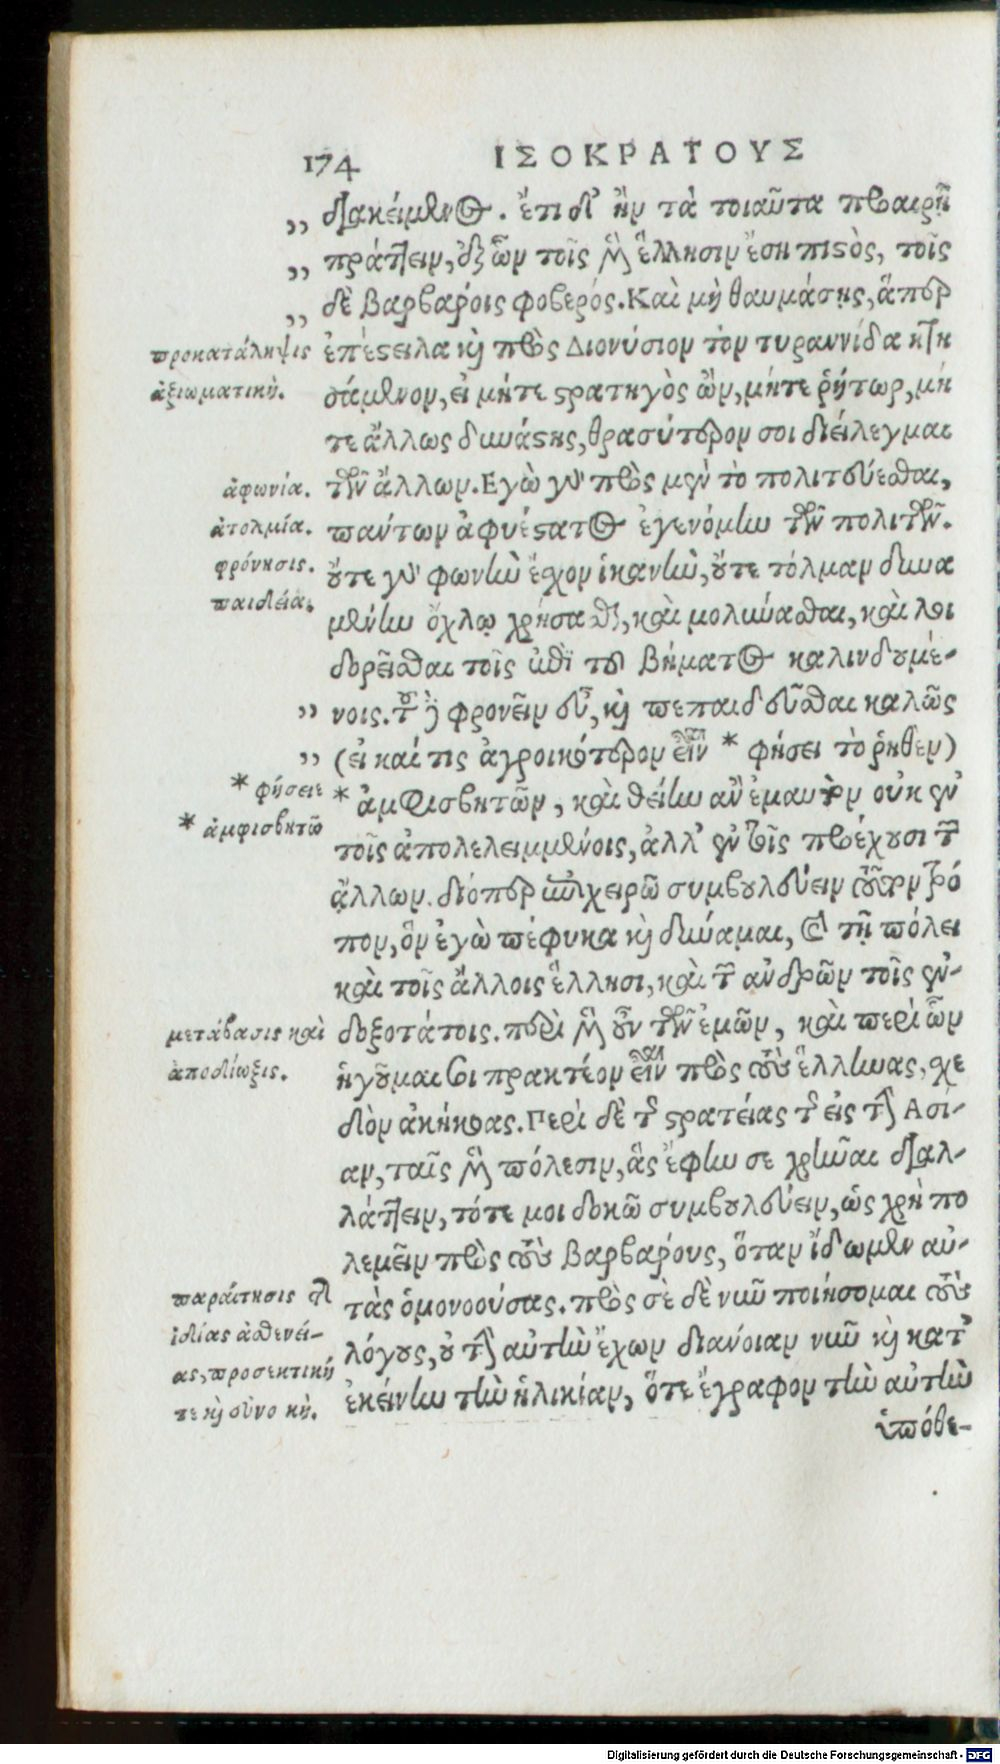 174 ΙΣΟΚΡΑΤΟΥΣ
„ διακείμενος. ἔτι δ' ἢν τὰ τοιαῦτα προαιρῇ
„ πράττειν, ἐξ ὧν τοῖς μὲν ἕλλησιν ἔσῃ πιστὸς, τοῖς
„ δὲ βαρβάροις φοβερός. Καὶ μὴ θαυμάσῃς, ἅπερ
προκατάληψις
ἀξιωματική.
ἐπέστειλα καὶ πρὸς Διονύσιον τὸν τυραννίδα κτη
σάμενον, εἰ μήτε στρατηγὸς ὢν, μήτε ῥήτωρ, μή
τε ἄλλως δυνάστης, θρασύτερόν σοι διείλεγμαι
ἀφωνία.
ἀτολμία.
φρόνησις.
παιδεία.
τῶν ἄλλων. Εγὼ γὰρ πρὸς μὲν τὸ πολιτεύεσθαι,
πάντων ἀφυέστατος ἐγενόμην τῶν πολιτῶν.
οὔτε γὰρ φωνὴν ἔχον ἱκανὴν, οὔτε τόλμαν δυνα
μένην ὄχλῳ χρῆσθαι, καὶ μολύνεσθαι, καὶ λοι
δορεῖσθαι τοῖς ἐπὶ τοῦ βήματος καλινδουμέ-
„ νοις. τοῦ δὲ φρονεῖν εὖ, καὶ πεπαιδεῦσθαι καλῶς
„ (εἰ καί τις ἀγροικότερον εἶναι * φήσει τὸ ῥηθὲν)
* φήσειε
* ἀμφισβητῶ
* ἀμφισβητῶν, καὶ θείην ἂν ἐμαυτὸν οὐκ ἐν
τοῖς ἀπολελειμμένοις, ἀλλ' ἐν τοῖς προέχουσι τῶν
ἄλλων. διόπερ ἐπιχειρῶ συμβουλεύειν τοῦτον τρό
πον, ὃν ἐγὼ πέφυκα καὶ δύναμαι, καὶ τῇ πόλει
καὶ τοῖς ἄλλοις ἕλλησι, καὶ τῶν ἀνδρῶν τοῖς ἐν-
μετάβασις καὶ
ἀποδίωξις.
δοξοτάτοις. περὶ μὲν οὖν τῶν ἐμῶν, καὶ περὶ ὧν
ἡγοῦμαι σοι πρακτέον εἶναι πρὸς τοὺς ἕλληνας, σχε
δὸν ἀκήκοας. Περὶ δὲ τῆς στρατείας τῆς εἰς τὴν Ασί-
αν, ταῖς μὲν πόλεσιν, ἃς ἔφην σε χρῆναι διαλ-
λάττειν, τότε μοι δοκῶ συμβουλεύειν, ὡς χρὴ πο
λεμεῖν πρὸς τοὺς βαρβάρους, ὅταν ἴδωμεν αὐ-
παραίτησις τῆς
ἰδίας ἀσθενεί-
ας, προσεκτική
τε καὶ εὐνοϊκή.
τὰς ὁμονοούσας. πρὸς σὲ δὲ νῦν ποιήσομαι τοὺς
λόγους, οὐ τὴν αὐτὴν ἔχων διάνοιαν νῦν καὶ κατ'
ἐκείνην τὴν ἡλικίαν, ὅτε ἔγραφον τὴν αὐτὴν
ὑπόθε-
Digitalisierung gefördert durch die Deutsche Forschungsgemeinschaft - DFG